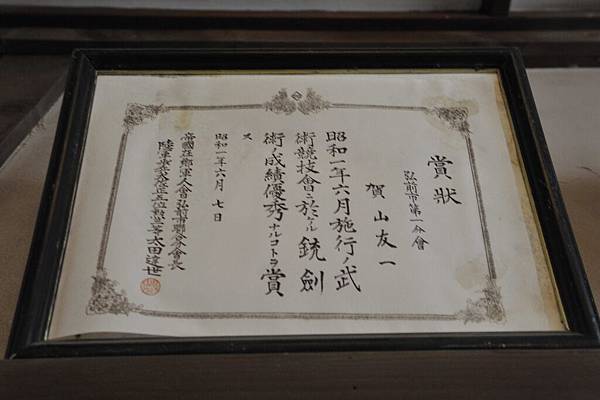 賞狀
弘前市第一分會
賀山友一
昭和一年六月施行ノ武
術競技會ニ於ケル銃劍
術ノ成績優秀ナルコトヲ賞
ス
昭和一年六月七日
帝國在鄕軍人會弘前市聯合分會長
陸軍 正五位勲三等太田達世